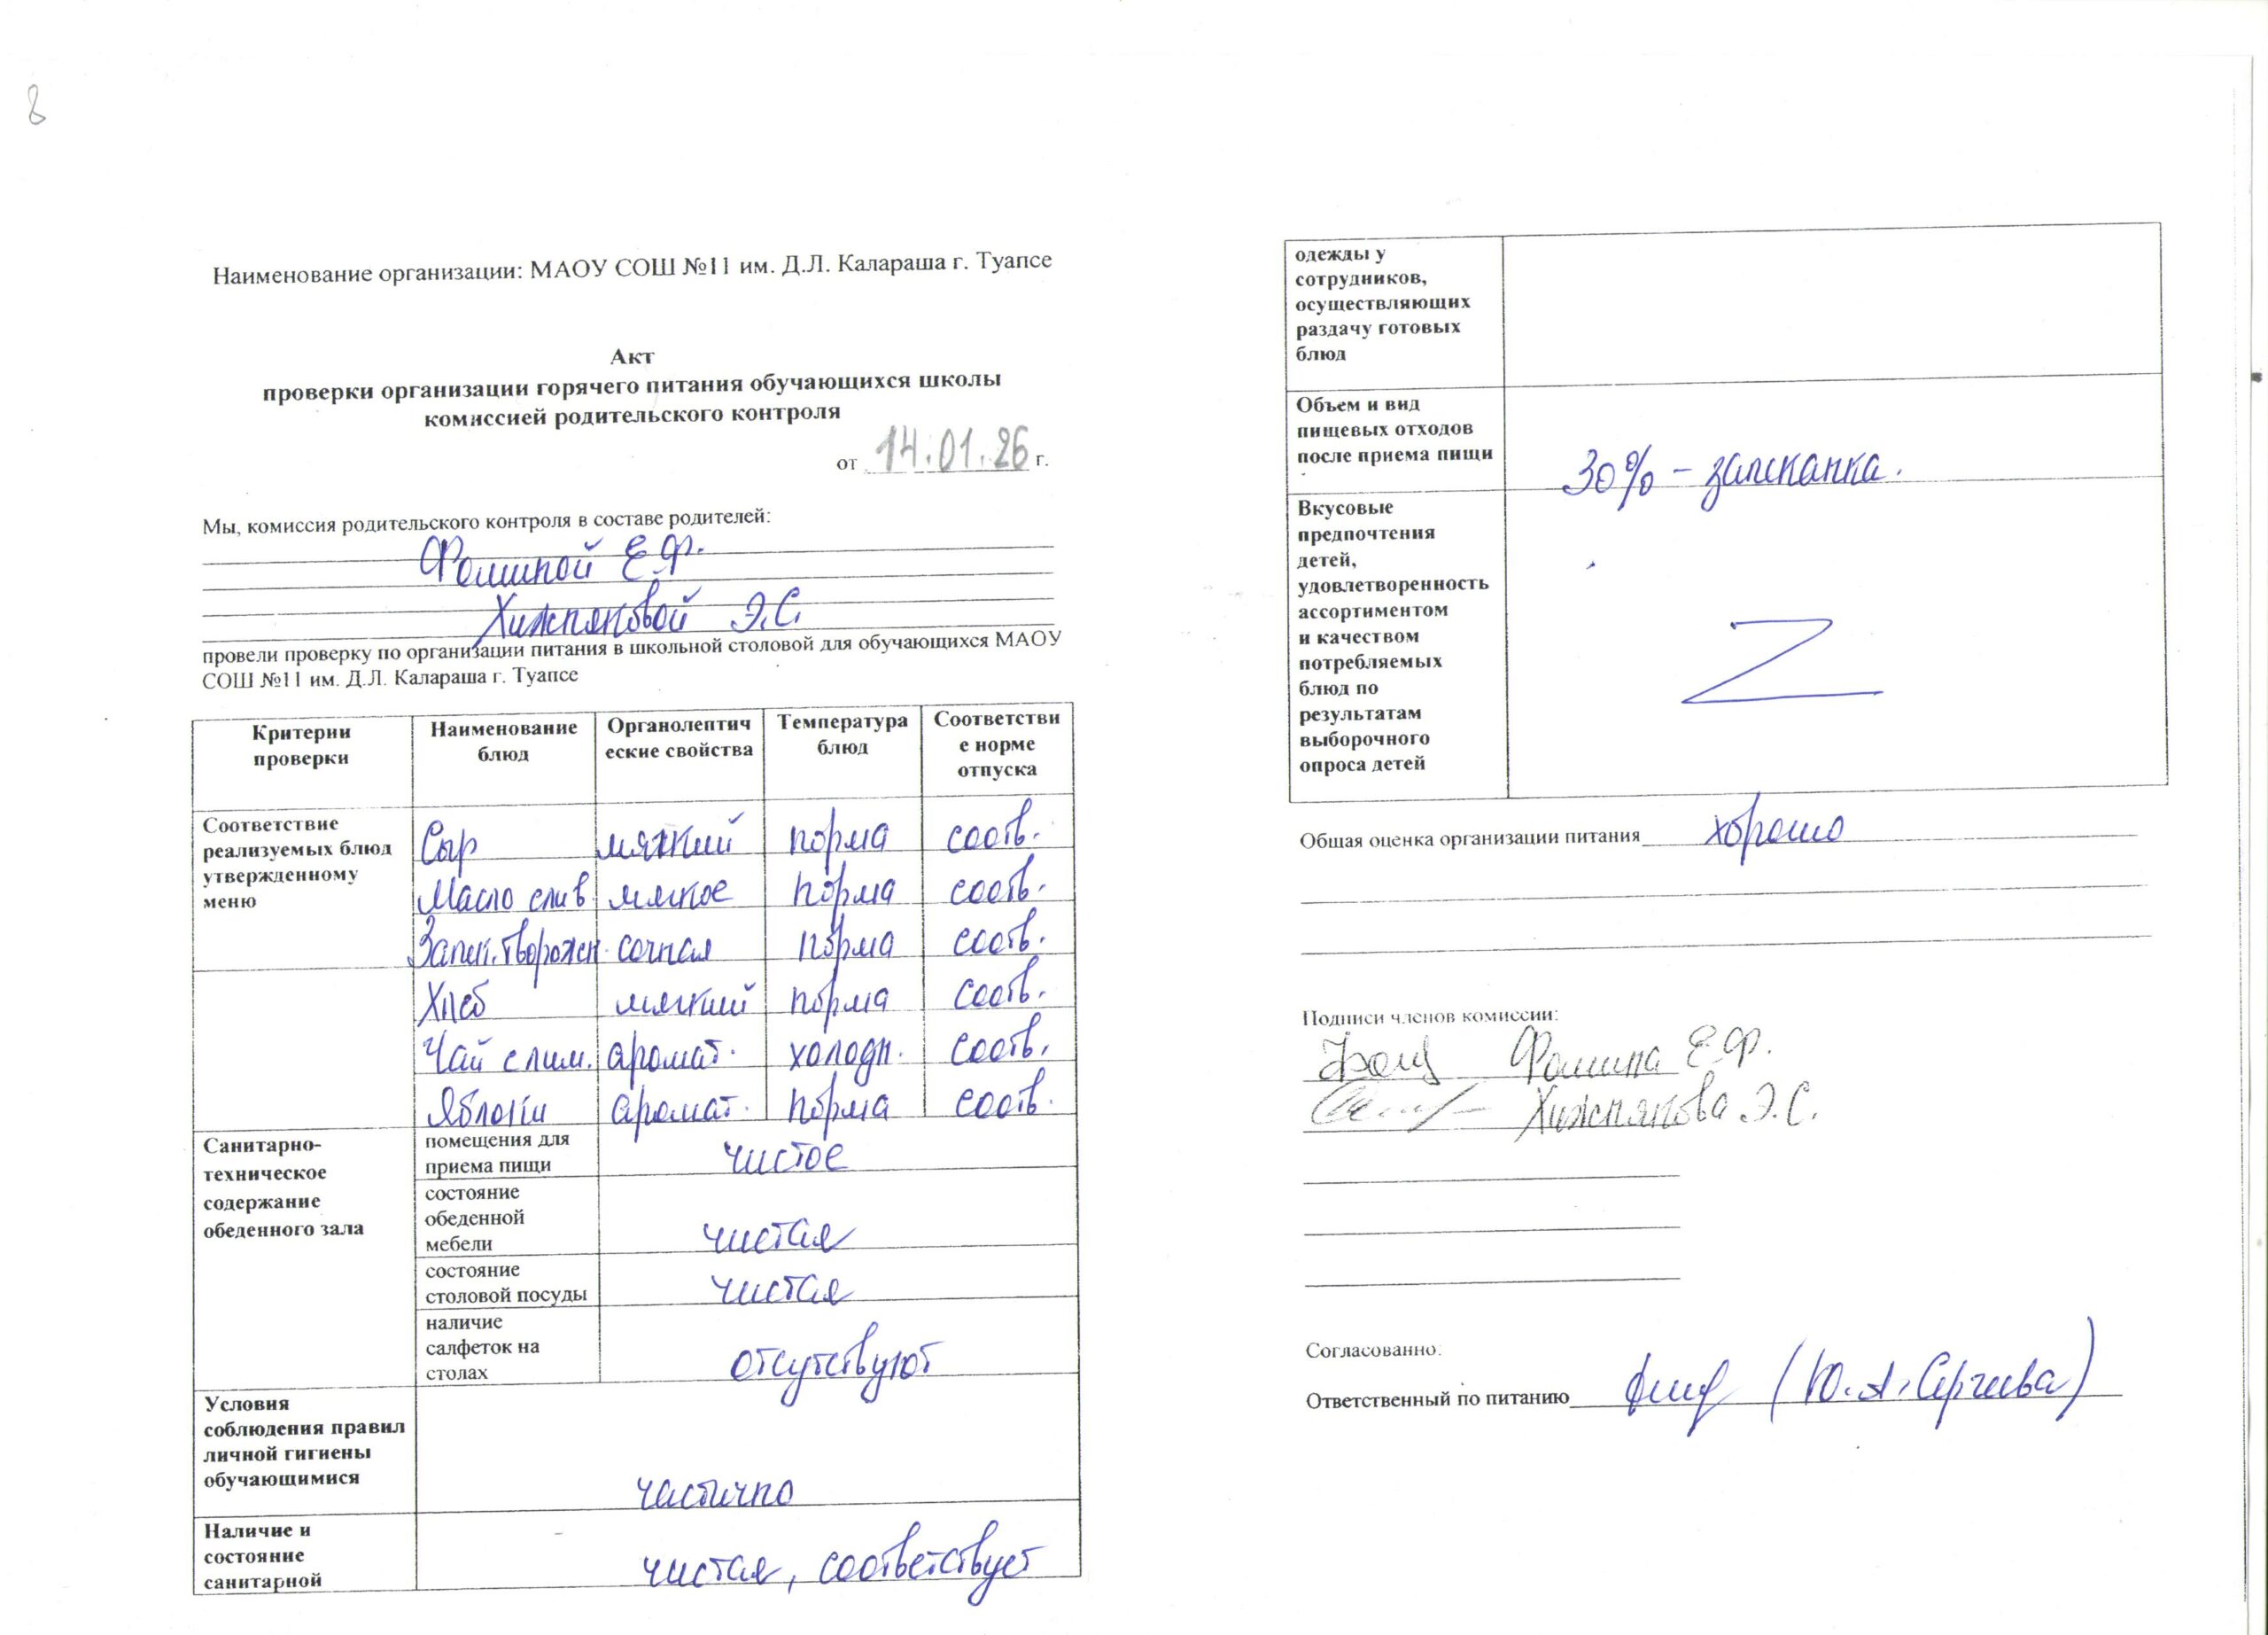 8
Наименование организации: МАОУ СОШ №11 им. Д.Л. Калараша г. Туапсе
Акт
проверки организации горячего питания обучающихся школы
комиссией родительского контроля
от 14.01.26 г.
Мы, комиссия родительского контроля в составе родителей:
Фоминой Е.Ф.
Хижняковой Э.С.
провели проверку по организации питания в школьной столовой для обучающихся МАОУ
СОШ №11 им. Д.Л. Калараша г. Туапсе
Критерии проверки | Наименование блюд | Органолептические свойства | Температура блюд | Соответствие норме отпуска
Соответствие
реализуемых блюд
утвержденному
меню
Сыр мягкий норма соотв.
Масло слив. мягкое норма соотв.
Запек. творожн. сочная норма соотв.
Хлеб мягкий норма соотв.
Чай с лим. аромат. холодн. соотв.
Яблоки аромат. норма соотв.
Санитарно-
техническое
содержание
обеденного зала
помещения для
приема пищи
чистое
состояние
обеденной
мебели
чистая
состояние
столовой посуды
чистая
наличие
салфеток на
столах
отсутствуют
Условия
соблюдения правил
личной гигиены
обучающимися
частично
Наличие и
состояние
санитарной
чистая, соответствует
одежды у
сотрудников,
осуществляющих
раздачу готовых
блюд
Объем и вид
пищевых отходов
после приема пищи
30% - запеканка.
Вкусовые
предпочтения
детей,
удовлетворенность
ассортиментом
и качеством
потребляемых
блюд по
результатам
выборочного
опроса детей
Z
Общая оценка организации питания хорошо
Подписи членов комиссии:
Фомина Е.Ф.
Хижнякова Э.С.
Согласованно:
Ответственный по питанию (Ю.А. Сергеева)